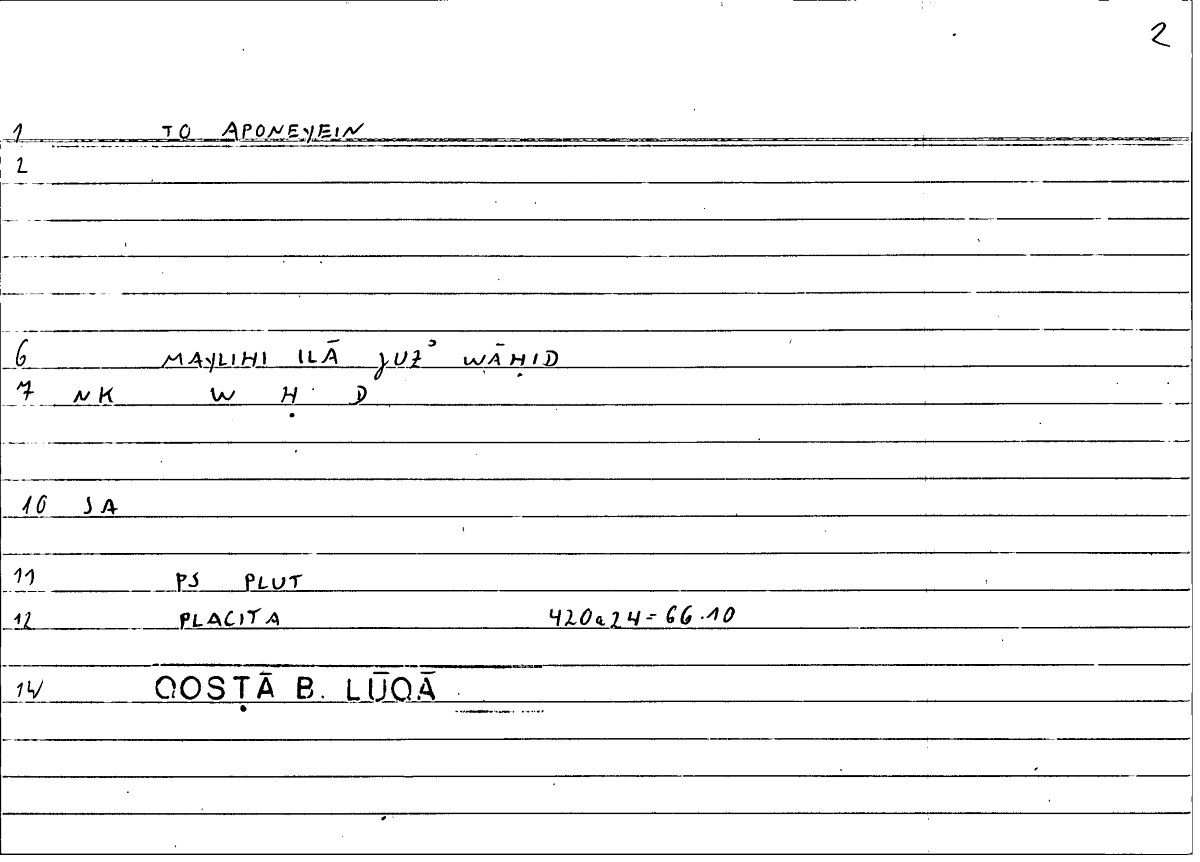 2
1 TO APONEYEIN
2
6 MAYLIHI ILĀ JUZʾ WĀḤID
7 NK W Ḥ D
10 SA
11 PS PLUT
12 PLACITA 420a24=66.10
14 QOSṬĀ B. LŪQĀ